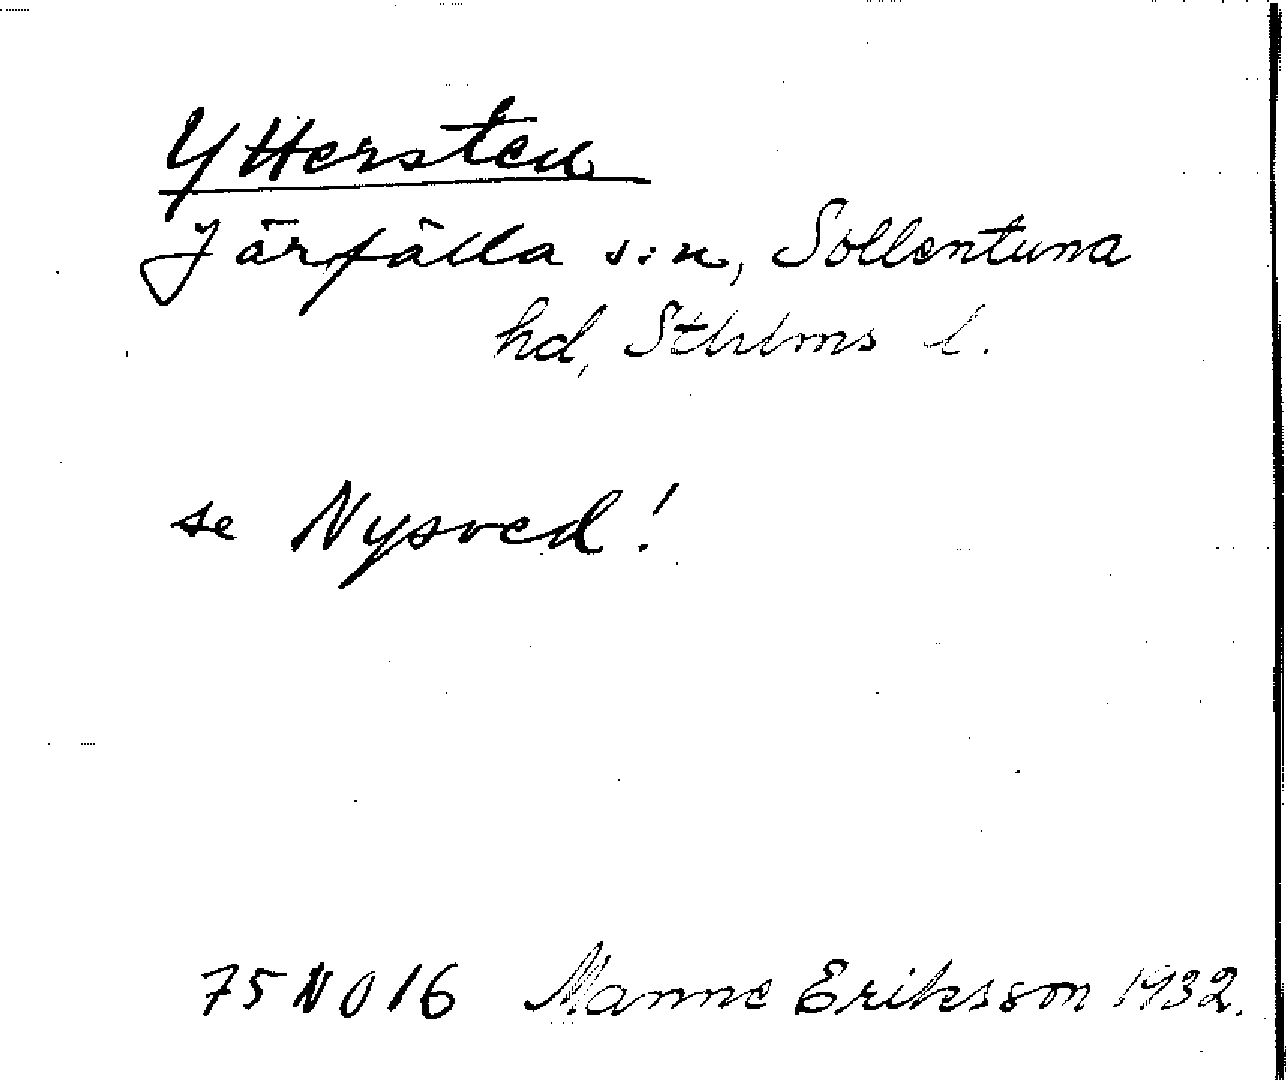 Yttersten
Järfälla s:n, Sollentuna
hd, Sthlms l.
se Nysved!
75 NO 16 Manne Eriksson 1932.